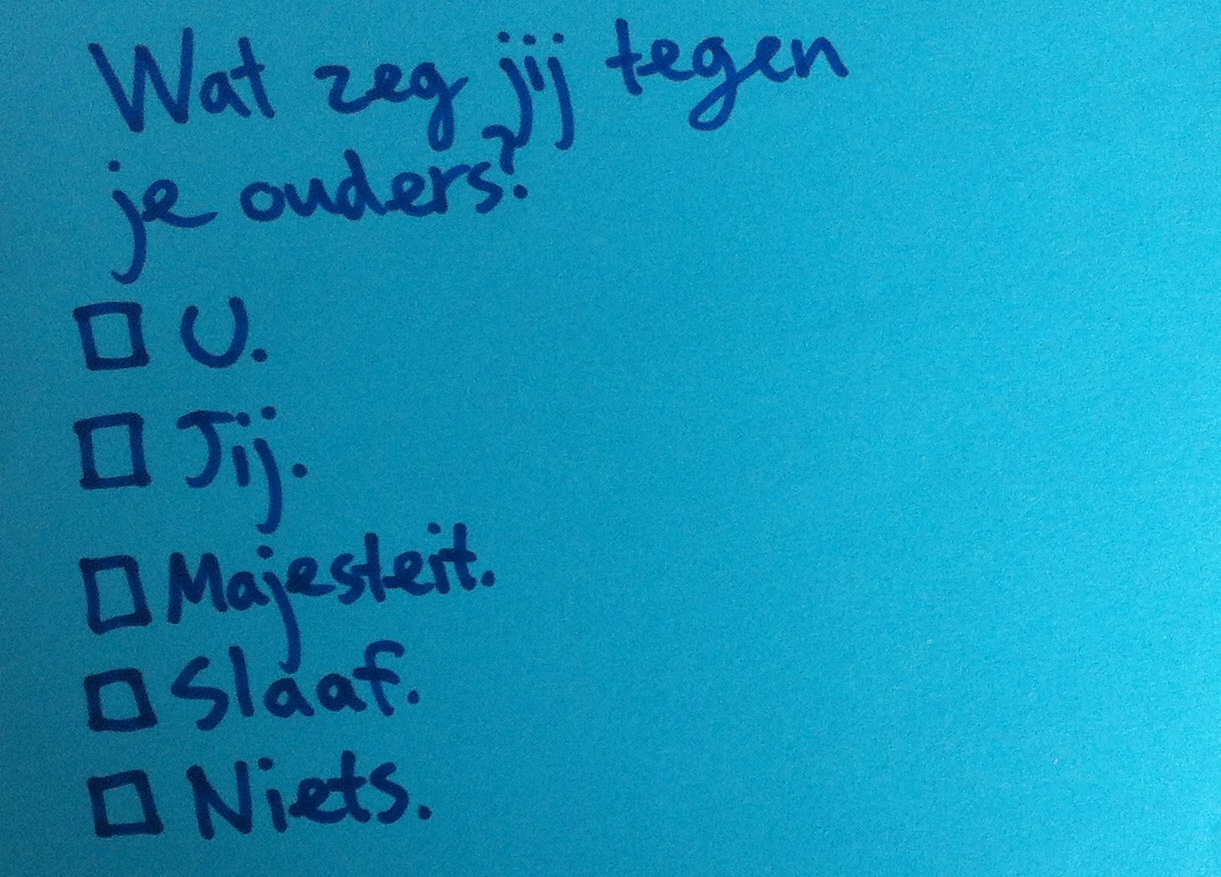 Wat zeg jij tegen
je ouders?
☐ U.
☐ Jij.
☐ Majesteit.
☐ Slaaf.
☐ Niets.